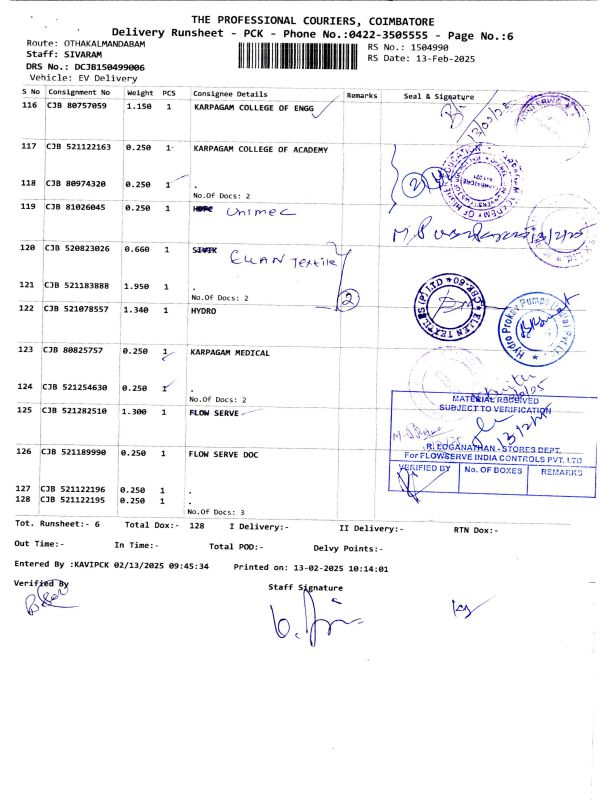 THE PROFESSIONAL COURIERS, COIMBATORE
Delivery Runsheet - PCK - Phone No.:0422-3505555 - Page No.:6
Route: OTHAKALMANDABAM
RS No.: 1504990
Staff: SIVARAM
RS Date: 13-Feb-2025
DRS No.: DCJB150499006
Vehicle: EV Delivery
S No Consignment No Weight PCS Consignee Details Remarks Seal & Signature
116 CJB 80757059 1.150 1 KARPAGAM COLLEGE OF ENGG
13/02/25
117 CJB 521122163 0.250 1 KARPAGAM COLLEGE OF ACADEMY
118 CJB 80974320 0.250 1 .
No.Of Docs: 2
2
119 CJB 81026045 0.250 1 Unimec
13/2/25
120 CJB 520823026 0.660 1 SIVIK
ELLAN Textile
121 CJB 521183888 1.950 1 .
No.Of Docs: 2
2
122 CJB 521078557 1.340 1 HYDRO
ELLEN TEXTILES (P) LTD CBE-60
Hydro Prokav Pumps (India) Pvt. Ltd.
123 CJB 80825757 0.250 1 KARPAGAM MEDICAL
124 CJB 521254630 0.250 1 .
No.Of Docs: 2
125 CJB 521282510 1.300 1 FLOW SERVE
MATERIAL RECEIVED
SUBJECT TO VERIFICATION
13/2/25
R. LOGANATHAN - STORES DEPT.
For FLOWSERVE INDIA CONTROLS PVT. LTD
VERIFIED BY No. OF BOXES REMARKS
126 CJB 521189990 0.250 1 FLOW SERVE DOC
127 CJB 521122196 0.250 1 .
128 CJB 521122195 0.250 1 .
No.Of Docs: 3
Tot. Runsheet:- 6 Total Dox:- 128 I Delivery:- II Delivery:- RTN Dox:-
Out Time:- In Time:- Total POD:- Delvy Points:-
Entered By :KAVIPCK 02/13/2025 09:45:34 Printed on: 13-02-2025 10:14:01
Verified By Staff Signature